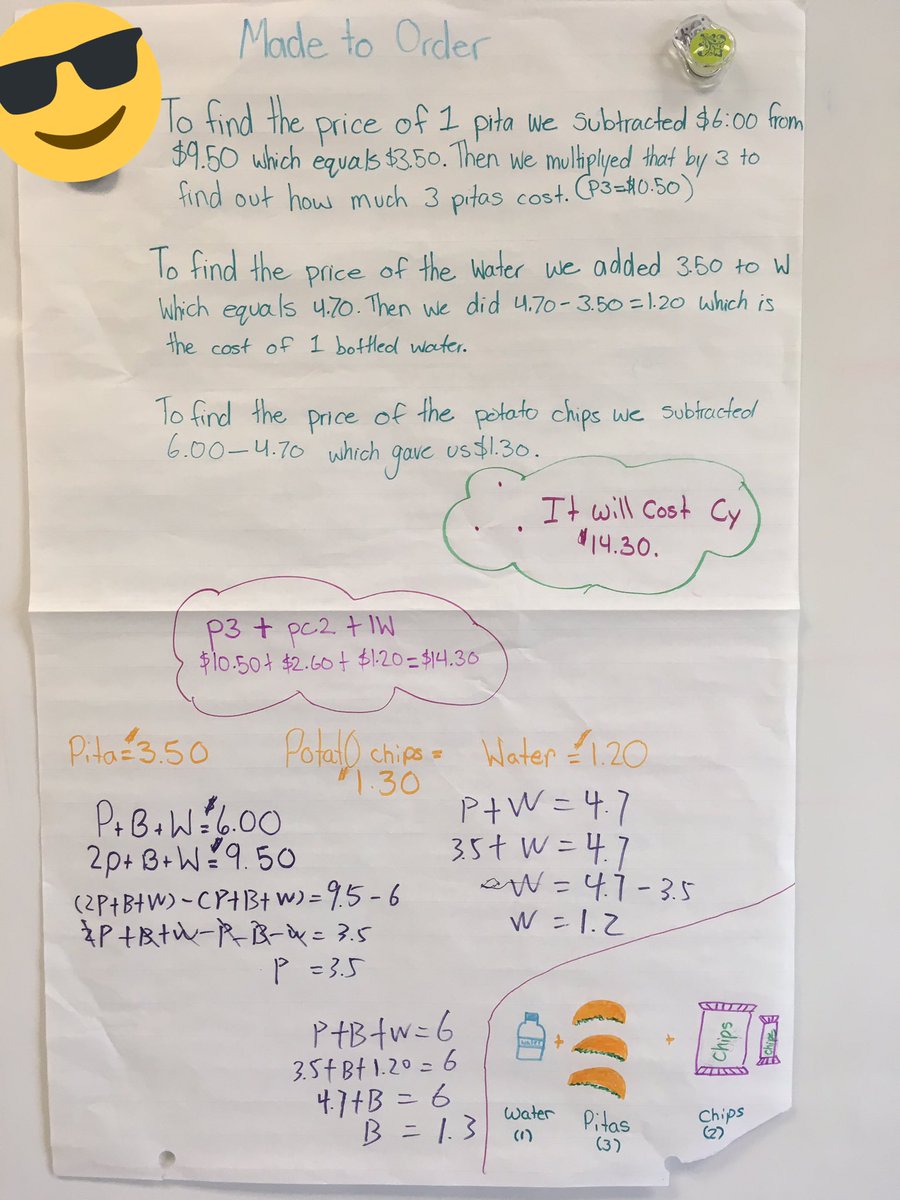 Made to Order
To find the price of 1 pita we subtracted $6:00 from
$9.50 which equals $3.50. Then we multiplyed that by 3 to
find out how much 3 pitas cost. (P3=$10.50)
To find the price of the water we added 3.50 to W
which equals 4.70. Then we did 4.70-3.50=1.20 which is
the cost of 1 bottled water.
To find the price of the potato chips we subtracted
6.00-4.70 which gave us $1.30.
It will cost Cy
$14.30.
p3 + pc2 + 1W
$10.50+ $2.60+ $1.20=$14.30
Pita=$3.50
Potato chips =
$1.30
Water =$1.20
P+B+W=$6.00
2p+B+W=$9.50
(2P+B+W)-(P+B+W)=9.5-6
2P+B+W-P-B-W=3.5
P =3.5
P+W=4.7
3.5+W=4.7
W=4.7-3.5
W=1.2
P+B+W=6
3.5+B+1.20=6
4.7+B=6
B=1.3
water
+
+
Chips
chips
Water
(1)
Pitas
(3)
Chips
(2)